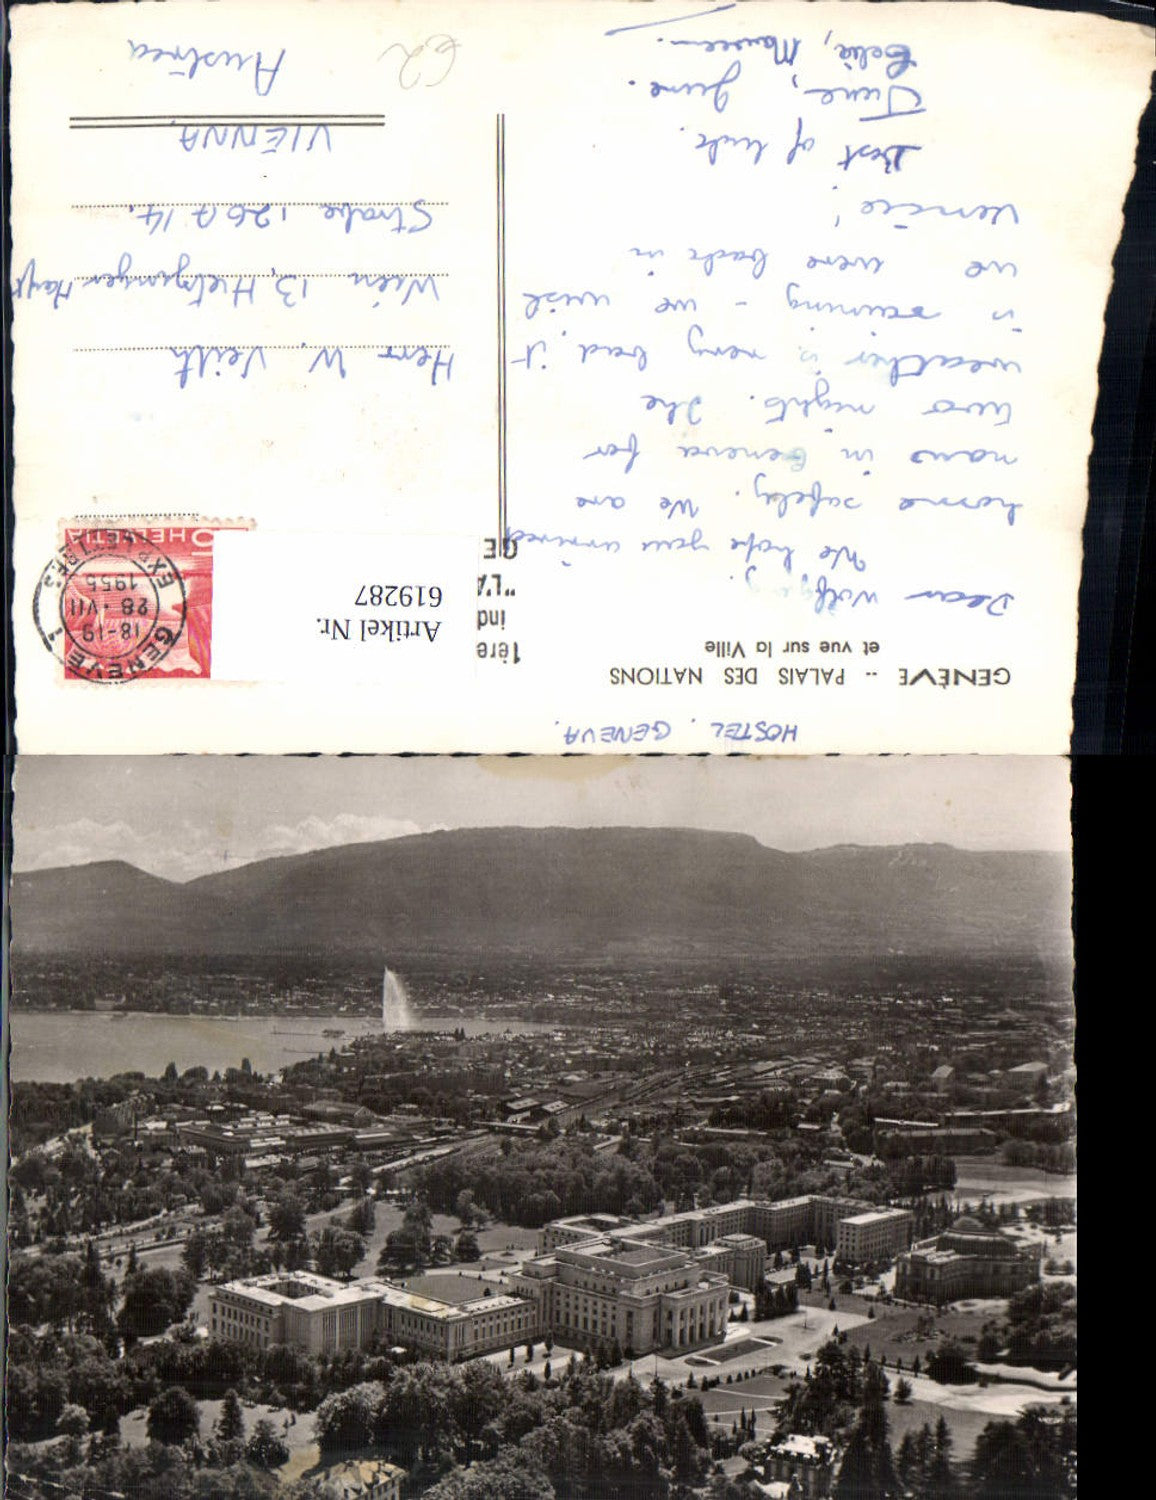 HOSTEL. GENEVA.
GENÈVE -- PALAIS DES NATIONS
et vue sur la Ville
Dear Wolfgang,
We hope you arrived
home safely. We are
now in Geneva for
two nights. The
weather is very bad, it
is raining - we wish
we were back in
Venice!
Best of luck.
June,
Celia, Maureen.
1ère
ind
"L'A
GE
Artikel Nr.
619287
HELVETIA
5
GENEVE 1
18-19
28.VII
1955
EXP. LETTRES
Herr W. Veith
Wein 13, Hietzinger
Straße 126 A 14.
VIENNA.
Austria
62